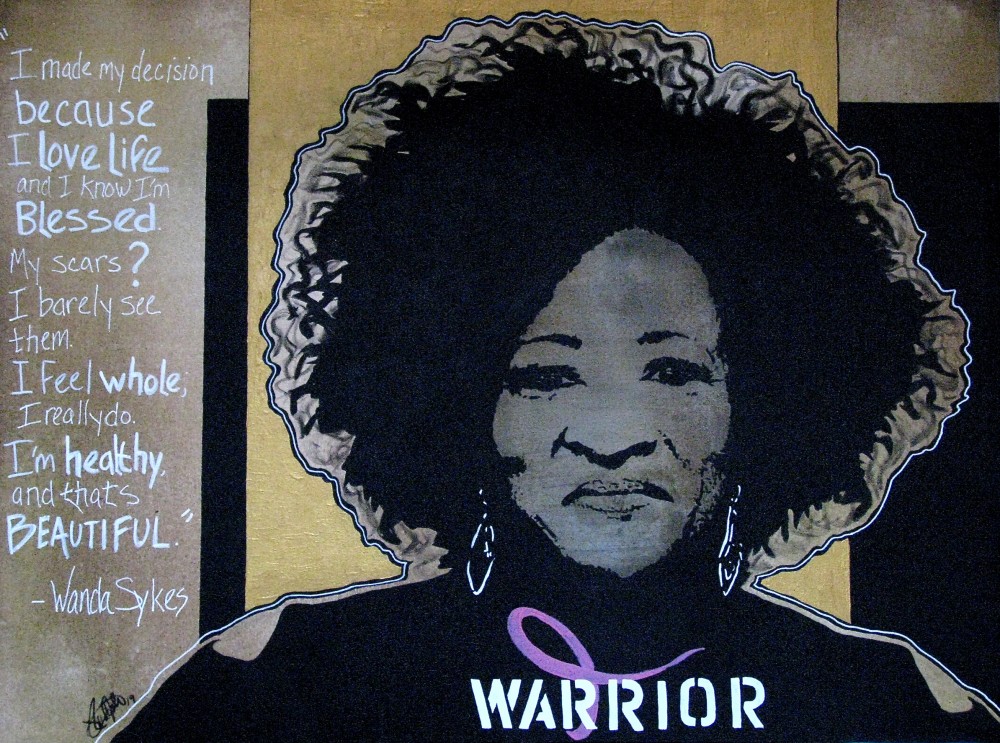 "I made my decision
because
I love life
and I know I'm
Blessed.
My scars?
I barely see
them.
I feel whole,
I really do.
I'm healthy,
and thats
BEAUTIFUL."
- Wanda Sykes
WARRIOR